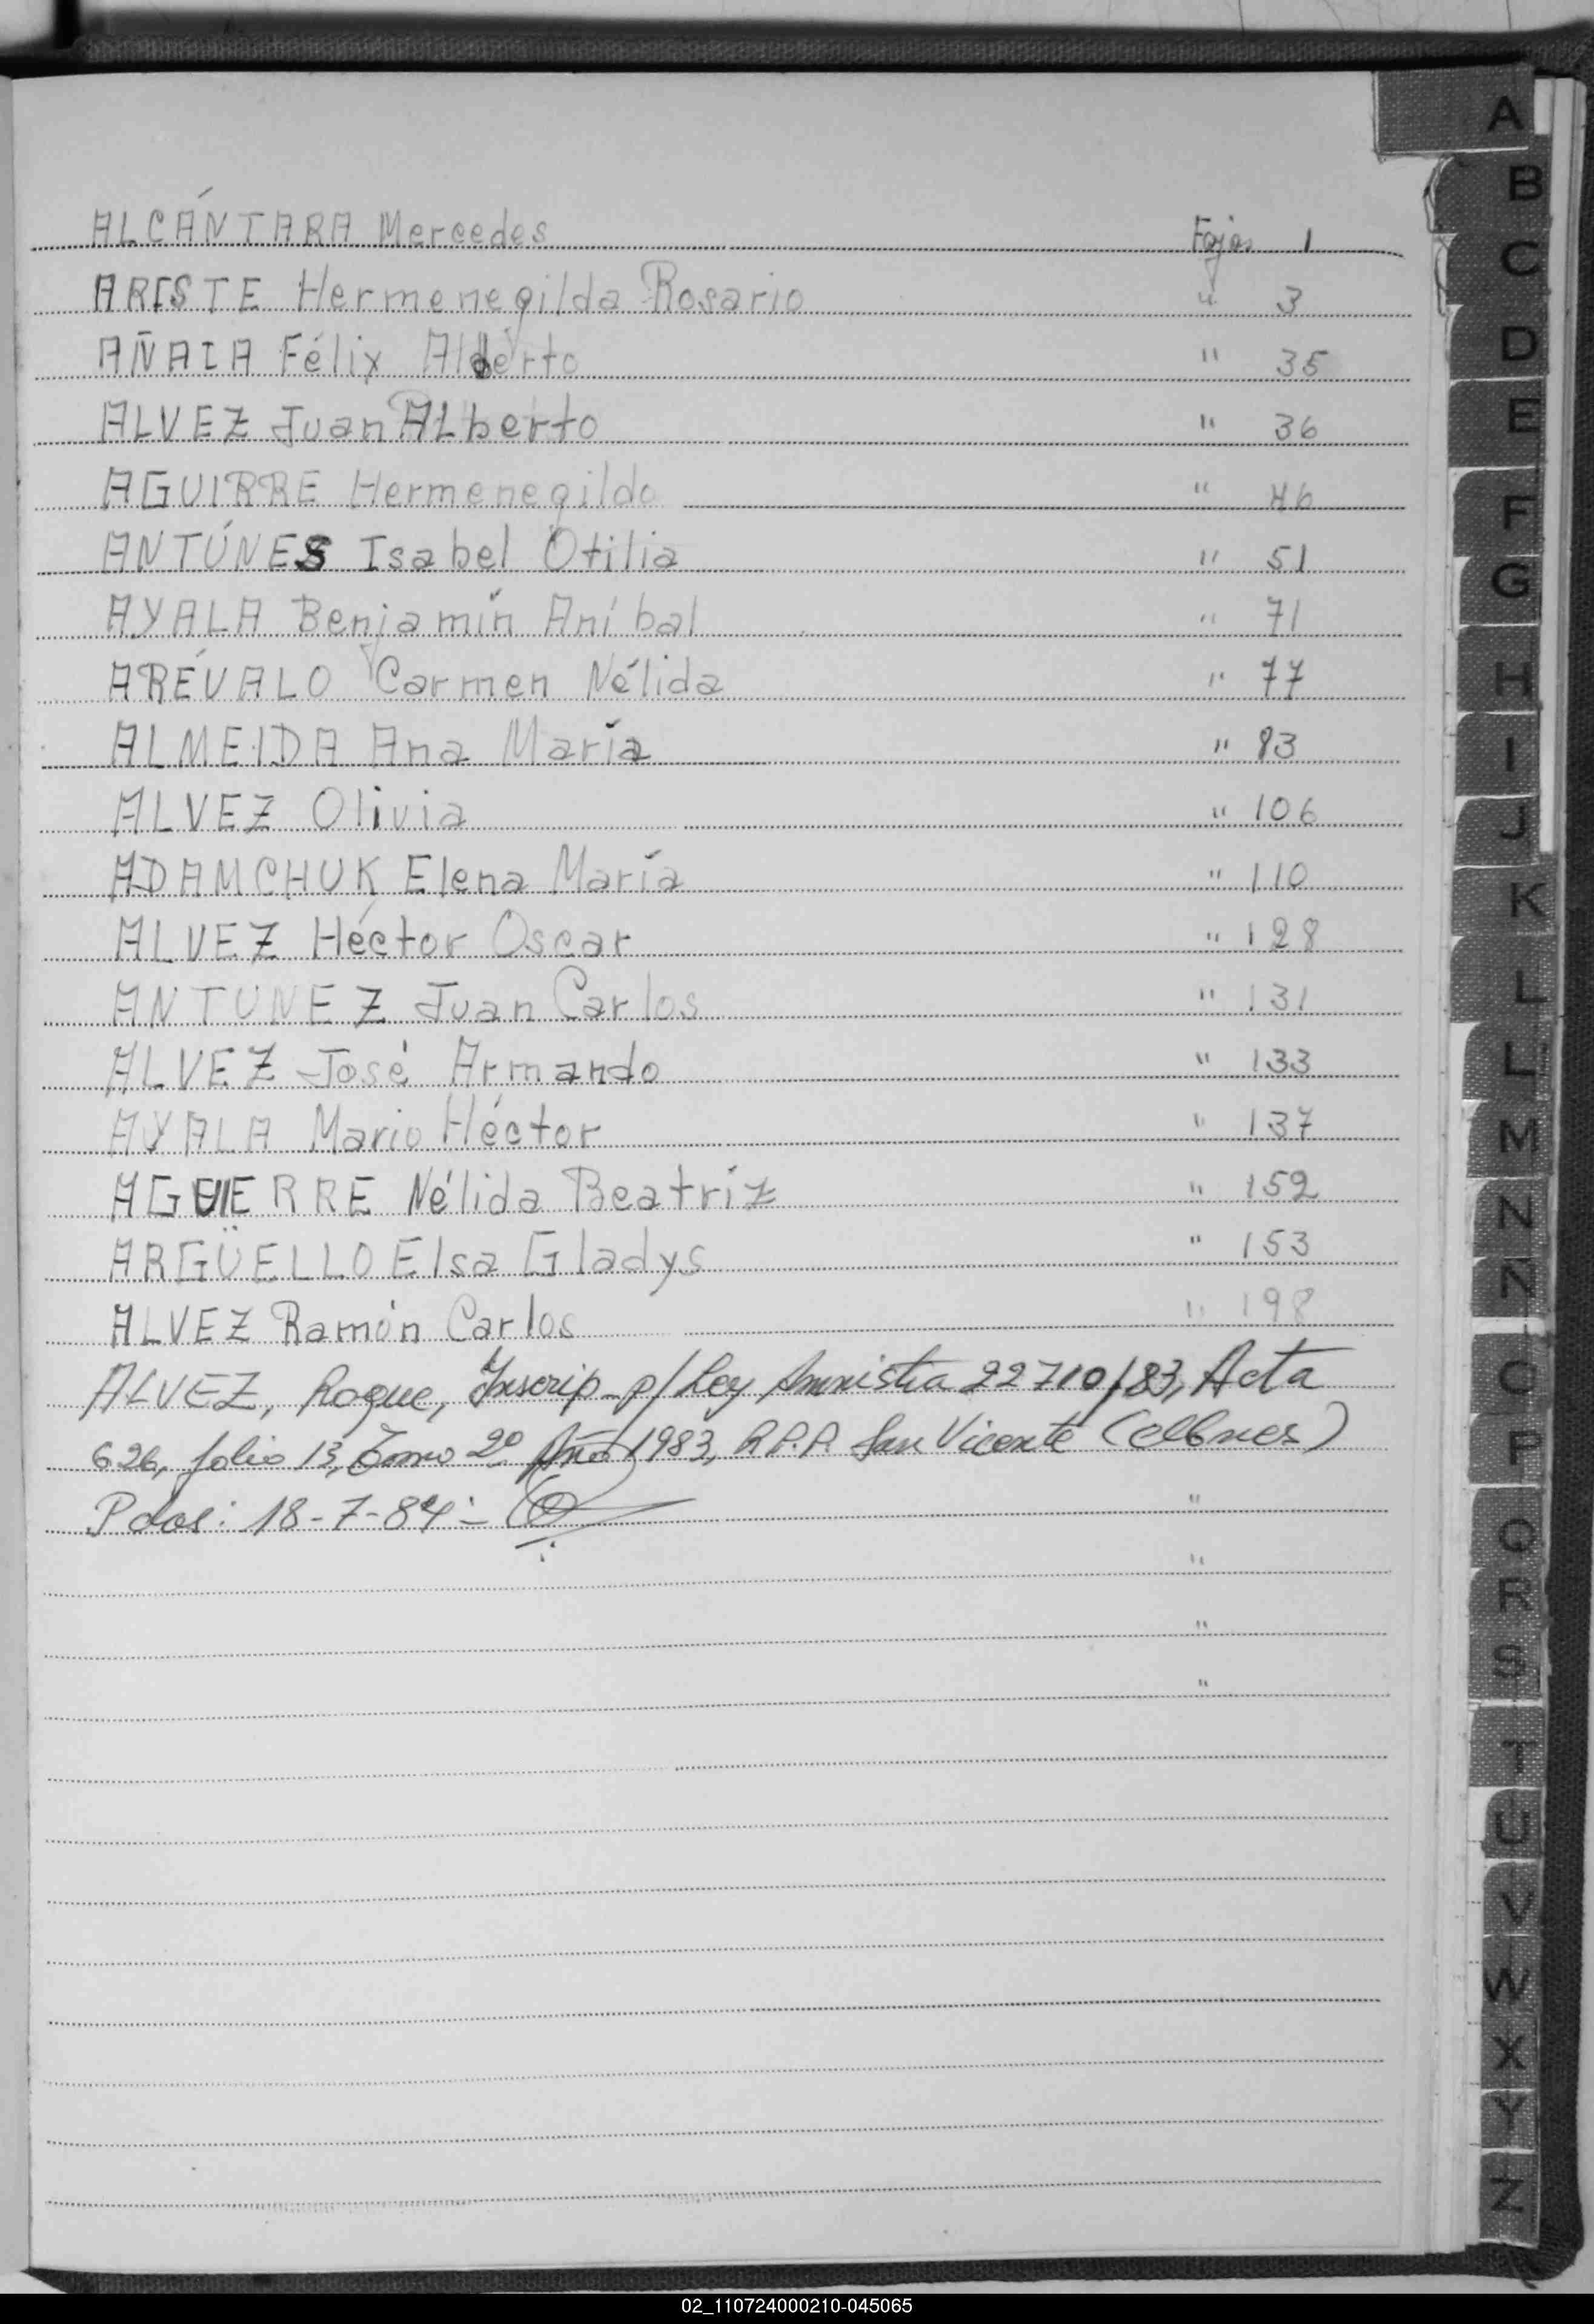 ALCÁNTARA Mercedes Fojas 1
ARISTE Hermenegilda Rosario " 3
AÑAIA Félix Alberto " 35
ALVEZ Juan ALberto " 36
AGUIRRE Hermenegildo " 46
ANTÚNES Isabel Otilia " 51
AYALA Benjamín Aníbal " 71
ARÉVALO Carmen Nélida " 77
ALMEIDA Ana María " 83
ALVEZ Olivia " 106
ADAMCHUK Elena María " 110
ALVEZ Héctor Oscar " 128
ANTUNEZ Juan Carlos " 131
ALVEZ José Armando " 133
AYALA Mario Héctor " 137
AGUIERRE Nélida Beatriz " 152
ARGÜELLO Elsa Gladys " 153
ALVEZ Ramón Carlos " 198
ALVEZ, Roque, Inscrip. p/ Ley Amnistia 22710/83, Acta
626, folio 13, Tomo 2º Año 1983, R.P.P. San Vicente
Pdas: 18-7-84 "
"
"
"
A
B
C
D
E
F
G
H
I
J
K
L
L
M
N
Ñ
O
P
Q
R
S
T
U
V
W
X
Y
Z
02_110724000210-045065